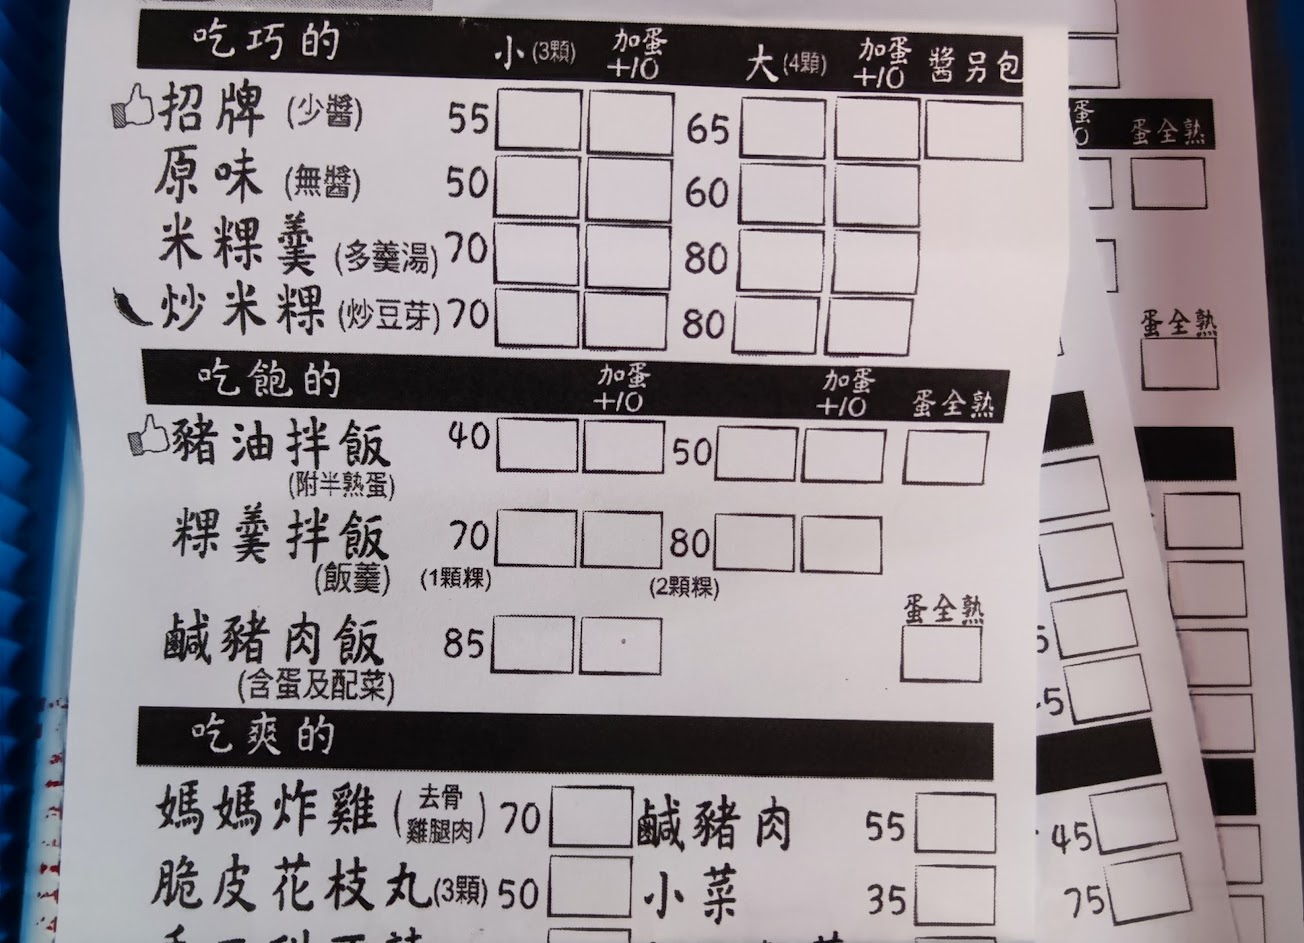 吃巧的 小(3顆) 加蛋+10 大(4顆) 加蛋+10 醬另包
招牌(少醬) 55 65
原味(無醬) 50 60
米粿羹(多羹湯) 70 80
炒米粿(炒豆芽) 70 80
吃飽的 加蛋+10 加蛋+10 蛋全熟
豬油拌飯 40 50
(附半熟蛋)
粿羹拌飯 70 80
(飯羹) (1顆粿) (2顆粿)
蛋全熟
鹹豬肉飯 85
(含蛋及配菜)
吃爽的
媽媽炸雞(去骨雞腿肉) 70 鹹豬肉 55
脆皮花枝丸(3顆) 50 小菜 35
蛋全熟
蛋全熟
45
75